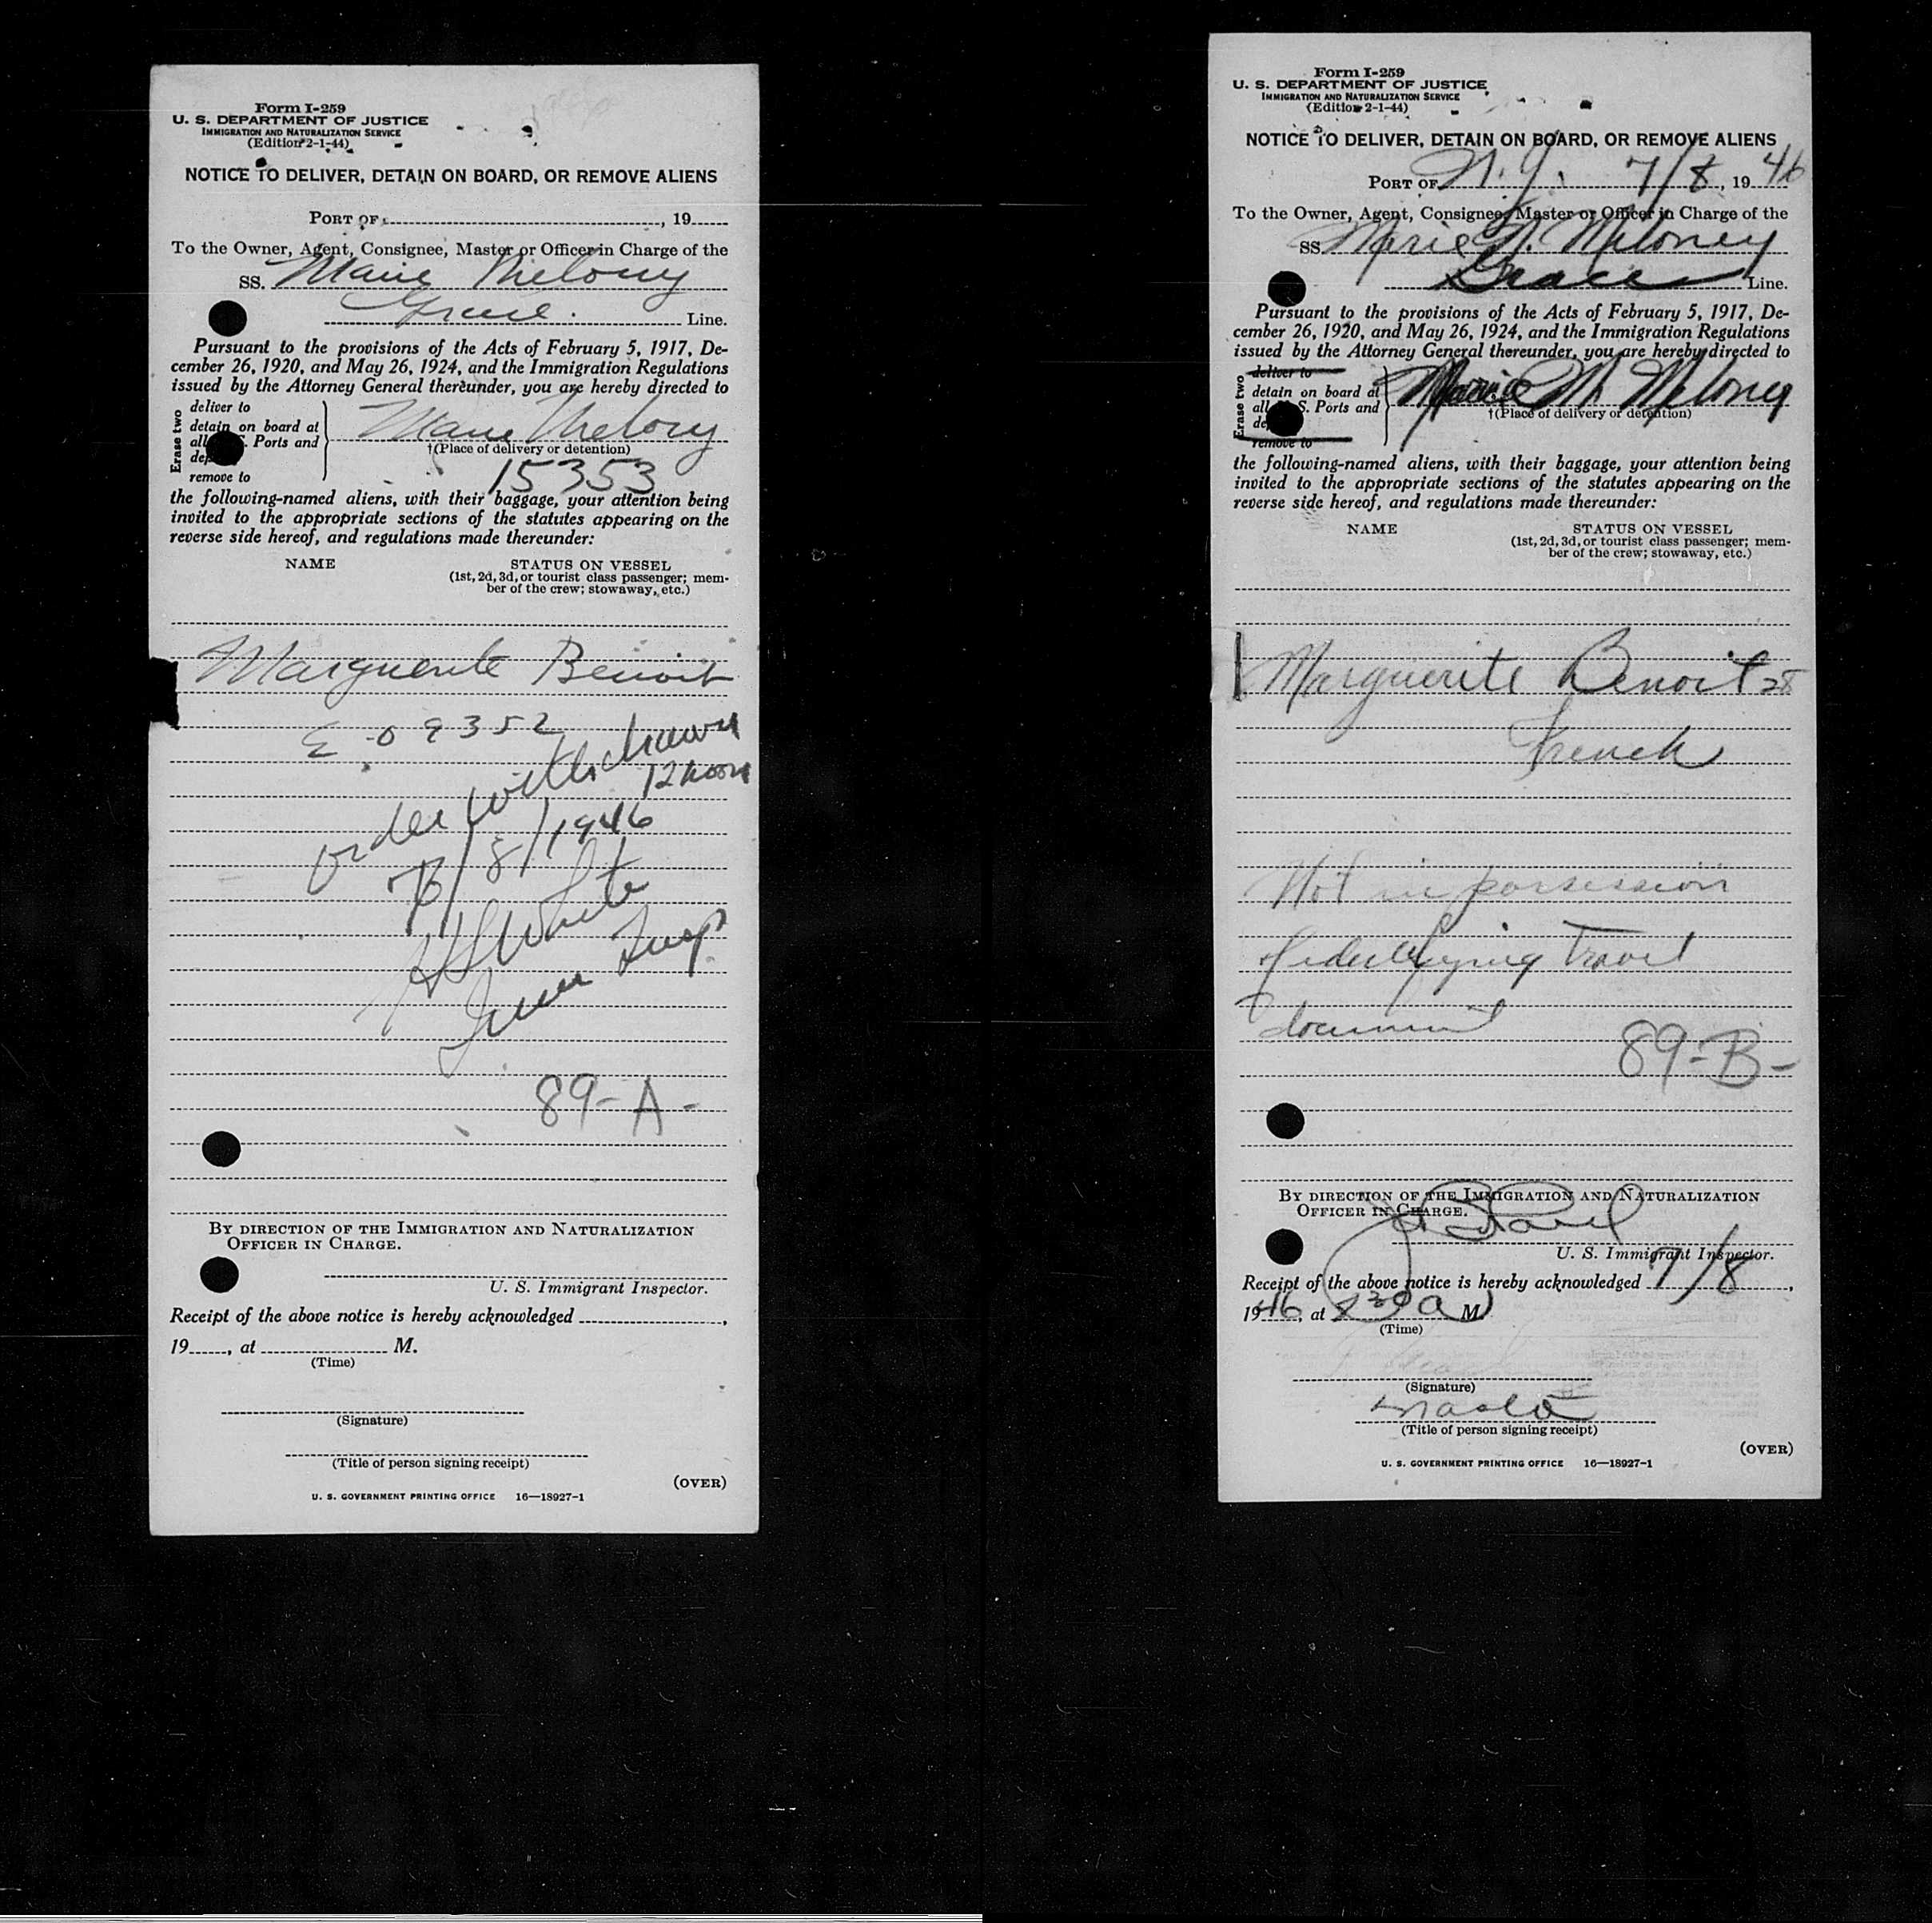 Form I-259
U. S. DEPARTMENT OF JUSTICE
IMMIGRATION AND NATURALIZATION SERVICE
(Edition 2-1-44)
NOTICE TO DELIVER, DETAIN ON BOARD, OR REMOVE ALIENS
PORT OF , 19
To the Owner, Agent, Consignee, Master or Officer in Charge of the
SS. Marie Melony
Grace Line.
Pursuant to the provisions of the Acts of February 5, 1917, De-
cember 26, 1920, and May 26, 1924, and the Immigration Regulations
issued by the Attorney General thereunder, you are hereby directed to
Erase two
deliver to
detain on board at
all Ports and
remove to
Marie Melony
†(Place of delivery or detention)
15353
the following-named aliens, with their baggage, your attention being
invited to the appropriate sections of the statutes appearing on the
reverse side hereof, and regulations made thereunder:
NAME STATUS ON VESSEL
(1st, 2d, 3d, or tourist class passenger; mem-
ber of the crew; stowaway, etc.)
Marguerite Benoit
E 09352
order withdrawn
12 noon
7/8/1946
White
Imm Insp.
89-A-
BY DIRECTION OF THE IMMIGRATION AND NATURALIZATION
OFFICER IN CHARGE.
U. S. Immigrant Inspector.
Receipt of the above notice is hereby acknowledged ,
19 , at M.
(Time)
(Signature)
(Title of person signing receipt)
(OVER)
U. S. GOVERNMENT PRINTING OFFICE 16—18927-1
Form I-259
U. S. DEPARTMENT OF JUSTICE
IMMIGRATION AND NATURALIZATION SERVICE
(Edition 2-1-44)
NOTICE TO DELIVER, DETAIN ON BOARD, OR REMOVE ALIENS
PORT OF N.Y. 7/8, 1946
To the Owner, Agent, Consignee, Master or Officer in Charge of the
SS. Marie M. Meloney
Grace Line.
Pursuant to the provisions of the Acts of February 5, 1917, De-
cember 26, 1920, and May 26, 1924, and the Immigration Regulations
issued by the Attorney General thereunder, you are hereby directed to
Erase two
deliver to
detain on board at
all S. Ports and
remove to
Marie M. Meloney
†(Place of delivery or detention)
the following-named aliens, with their baggage, your attention being
invited to the appropriate sections of the statutes appearing on the
reverse side hereof, and regulations made thereunder:
NAME STATUS ON VESSEL
(1st, 2d, 3d, or tourist class passenger; mem-
ber of the crew; stowaway, etc.)
Marguerite Benoit 28
French
Not in possession
of identifying travel
document
89-B-
BY DIRECTION OF THE IMMIGRATION AND NATURALIZATION
OFFICER IN CHARGE.
U. S. Immigrant Inspector.
Receipt of the above notice is hereby acknowledged 7/8,
1946, at 8 30 a M.
(Time)
(Signature)
Master
(Title of person signing receipt)
(OVER)
U. S. GOVERNMENT PRINTING OFFICE 16—18927-1